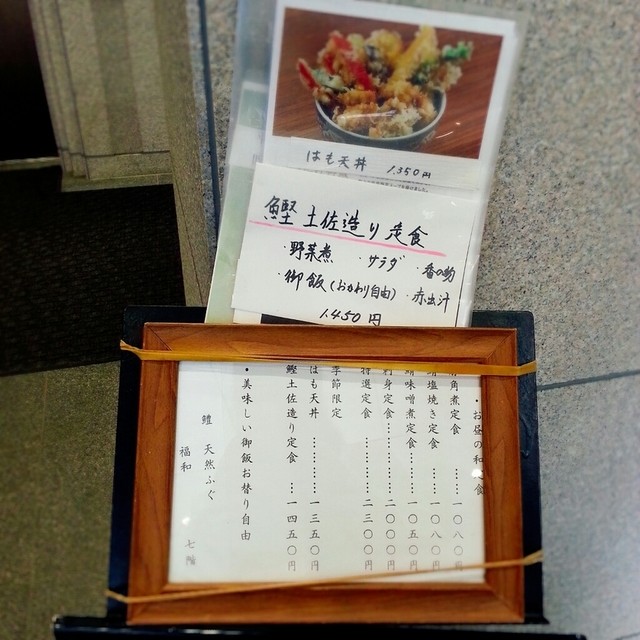 はも天丼 1.350円
鰹 土佐造り定食
・野菜煮 ・サラダ ・香の物
・御飯(おかわり自由) ・赤出汁
1.450円
・お昼の和定食
角煮定食 ………一〇八〇円
鯖塩焼き定食 ……一〇八〇円
鯖味噌煮定食 ……一〇五〇円
刺身定食 …………二〇〇〇円
特選定食 …………二三〇〇円
季節限定
はも天丼 …………一三五〇円
鰹土佐造り定食 …一四五〇円
・美味しい御飯お替り自由
鱧 天然ふぐ
福和 七階